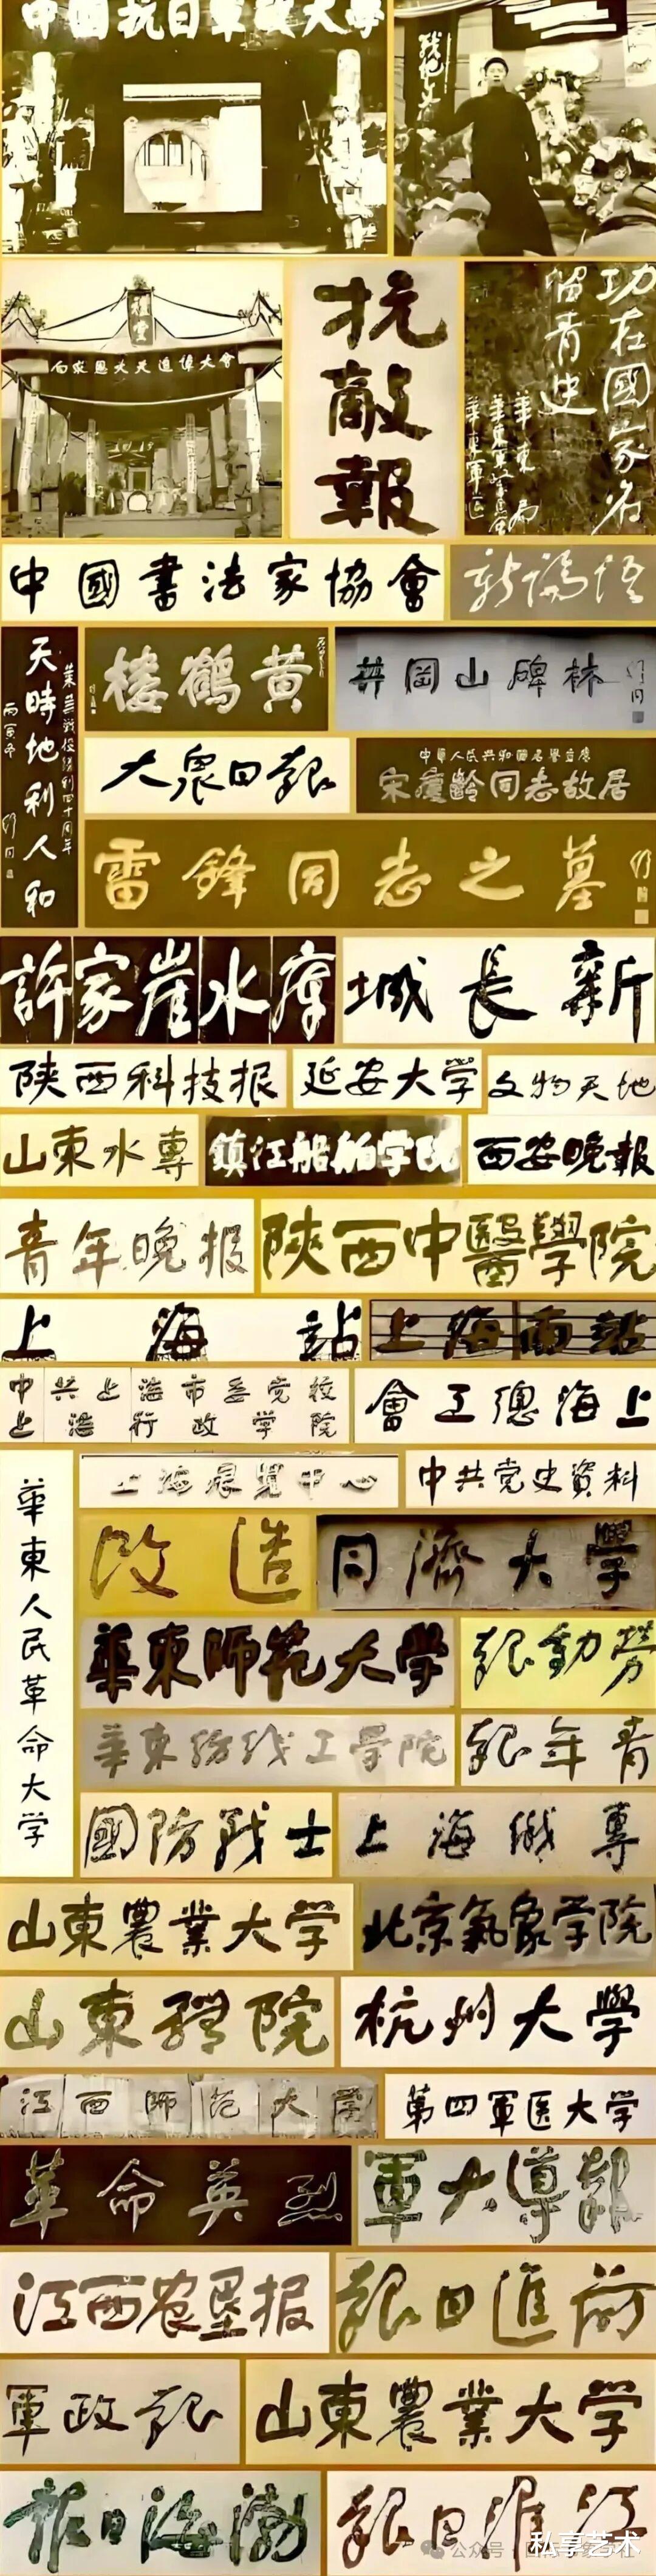 中國抗日軍政大学
灵堂
向炎恩大夫追悼大會
抗敵報
功在國家名
留青史
華東局
華東軍區
中國書法家協會
新論語
天時地利人和
莱蕪戰役勝利四十周年
丙寅冬 舒同
黄鶴楼
井岡山碑林 舒同
大衆日報
中華人民共和國名譽主席
宋慶齡同志故居
雷鋒同志之墓
許家崖水庫
新長城
陕西科技报
延安大学
文物天地
山東水專
鎮江船舶学院
西安晚報
青年晚报
陝西中醫學院
上海站
上海南站
中共上海市委党校
上海行政学院
上海總工會
華東人民革命大学
上海展覽中心
中共党史資料
改造
同濟大學
華東師范大学
勞動報
華東紡織工学院
青年報
國防戰士
上海钢專
山東農業大学
北京氣象学院
山東福院
杭州大學
江西師范大学
第四軍医大学
革命英烈
軍大導報
江西农垦报
前進日報
軍政報
山東農業大学
渤海日报
江淮日報
公众号
私享艺术